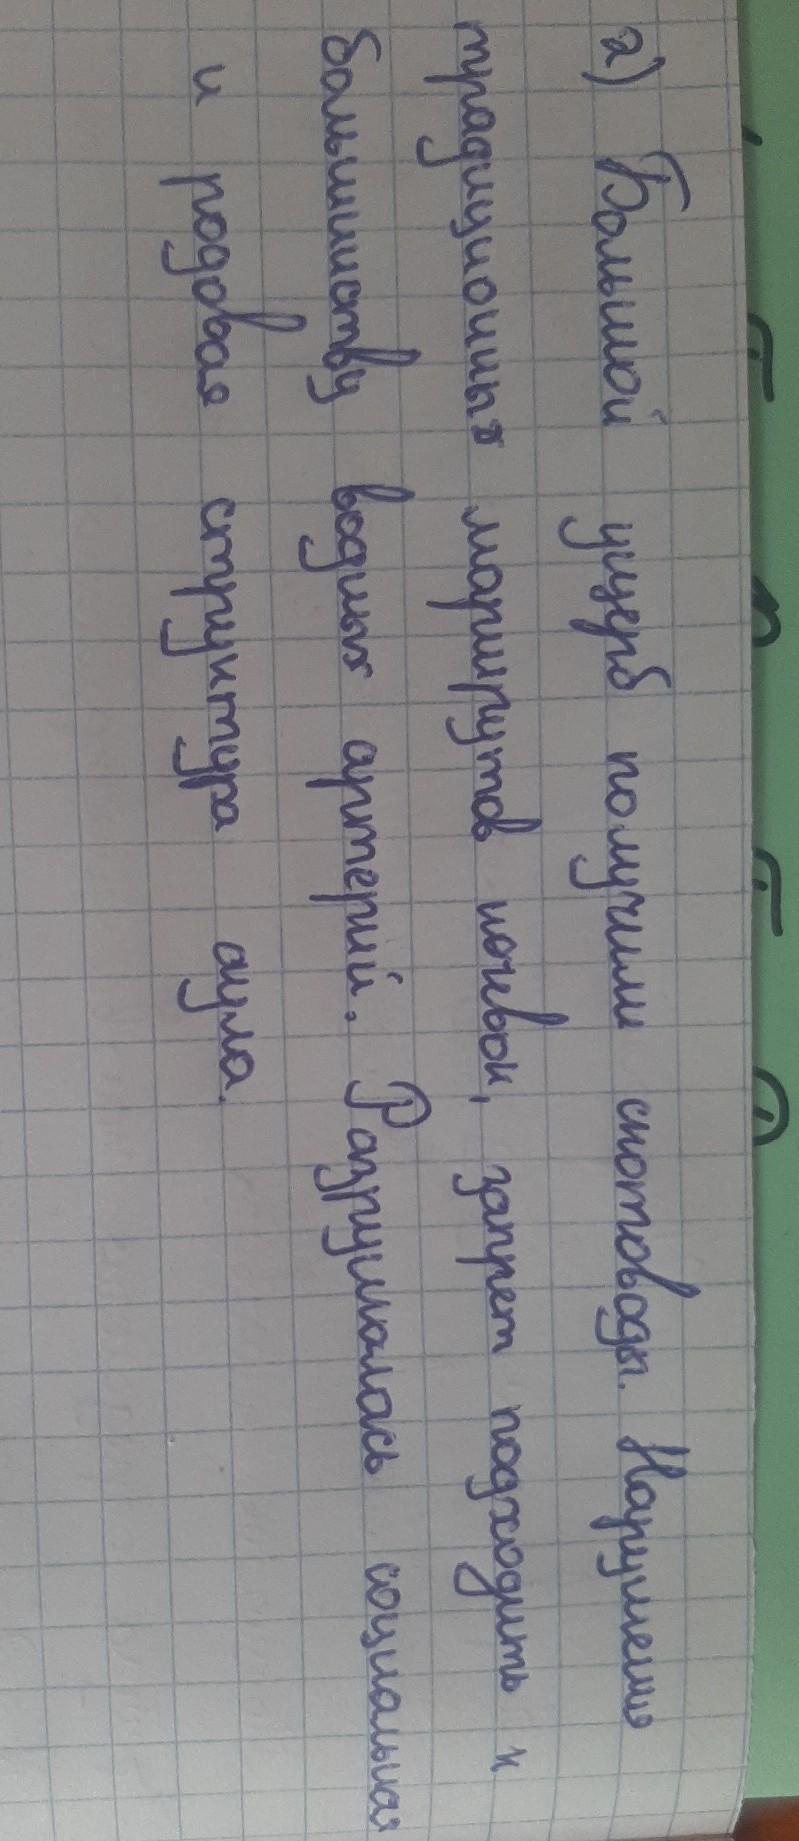 2) Большой ущерб получили скотоводы. Нарушение
традиционных маршрутов кочевок, запрет подходить к
большинству водных артерий. Разрушалась социальная
и родовая структура аула.